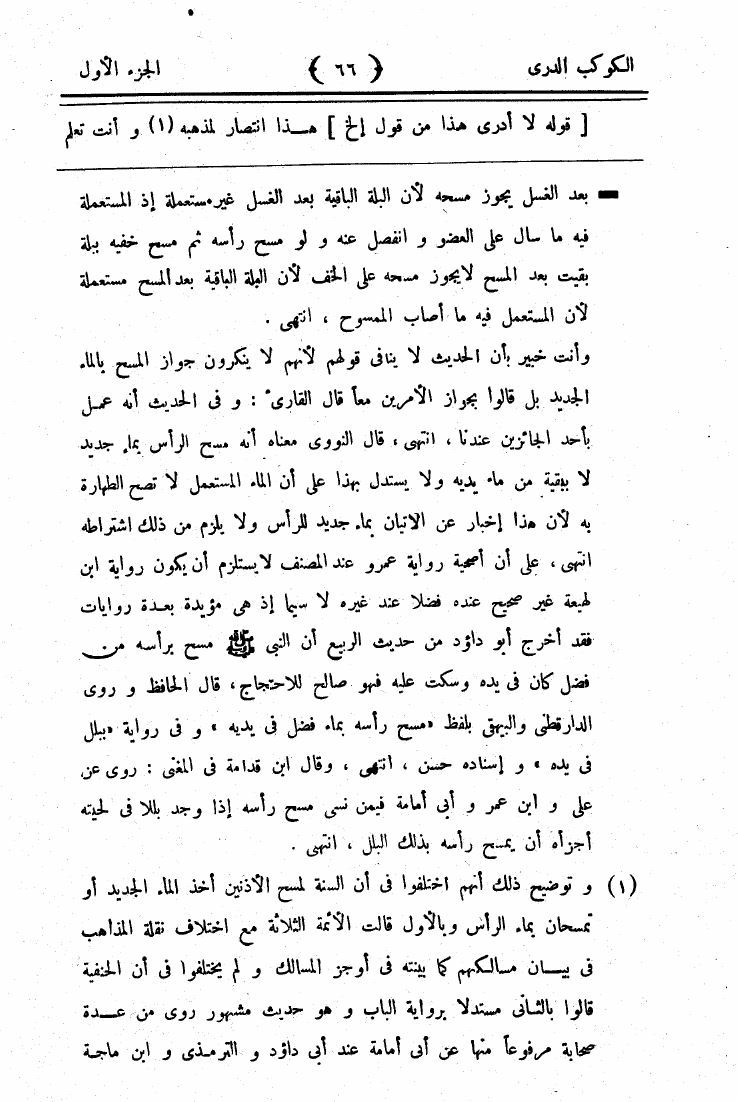 الكوكب الدرى ﴿ ٦٦ ﴾ الجزء الأول
[ قوله لا أدرى هذا من قول إلخ ] هــذا انتصار لمذهبه (١) و أنت تعلم
▬ بعد الغسل يجوز مسحه لأن البلة الباقية بعد الغسل غير مستعملة إذ المستعملة
فيه ما سال على العضو و انفصل عنه و لو مسح رأسه ثم مسح خفيه ببلة
بقيت بعد المسح لايجوز مسحه على الخف لأن البلة الباقية بعد المسح مستعملة
لأن المستعمل فيه ما أصاب الممسوح ، انتهى .
وأنت خبير بأن الحديث لا ينافى قولهم لأنهم لا ينكرون جواز المسح بالماء
الجديد بل قالوا بجواز الأمرين معاً قال القارىء : و فى الحديث أنه عمــل
بأحد الجائزين عندنا ، انتهى ، قال النووى معناه أنه مسح الرأس بماء جديد
لا ببقية من ماء يديه ولا يستدل بهذا على أن الماء المستعمل لا تصح الطهارة
به لأن هذا إخبار عن الاتيان بماء جديد للرأس ولا يلزم من ذلك اشتراطه
انتهى ، على أن أصحية رواية عمرو عند المصنف لايستلزم أن يكون رواية ابن
لهيعة غير صحيح عنده فضلا عند غيره لا سيما إذ هى مؤيدة بعــدة روايات
فقد أخرج أبو داؤد من حديث الربيع أن النبى ﷺ مسح برأسه من
فضل كان فى يده وسكت عليه فهو صالح للاحتجاج ، قال الحافظ و روى
الدارقطنى والبيهقى بلفظ «مسح رأسه بماء فضل فى يديه » و فى رواية «ببلل
فى يده » و إسناده حسن ، انتهى ، وقال ابن قدامة فى المغنى : روى عن
على و ابن عمر و أبى أمامة فيمن نسى مسح رأسه إذا وجد بللا فى لحيته
أجزأه أن يمسح رأسه بذلك البلل ، انتهى .
(١) و توضيح ذلك أنهم اختلفوا فى أن السنة لمسح الأذنين أخذ الماء الجديد أو
تمسحان بماء الرأس وبالأول قالت الأئمة الثلاثة مع اختلاف نقلة المذاهب
فى بيــان مسالكهم كما بينته فى أوجز المسالك و لم يختلفوا فى أن الحنفية
قالوا بالثانى مستدلا برواية الباب و هو حديث مشهور روى من عــدة
صحابة مرفوعاً منها عن أبى أمامة عند أبى داؤد و الترمذى و ابن ماجة